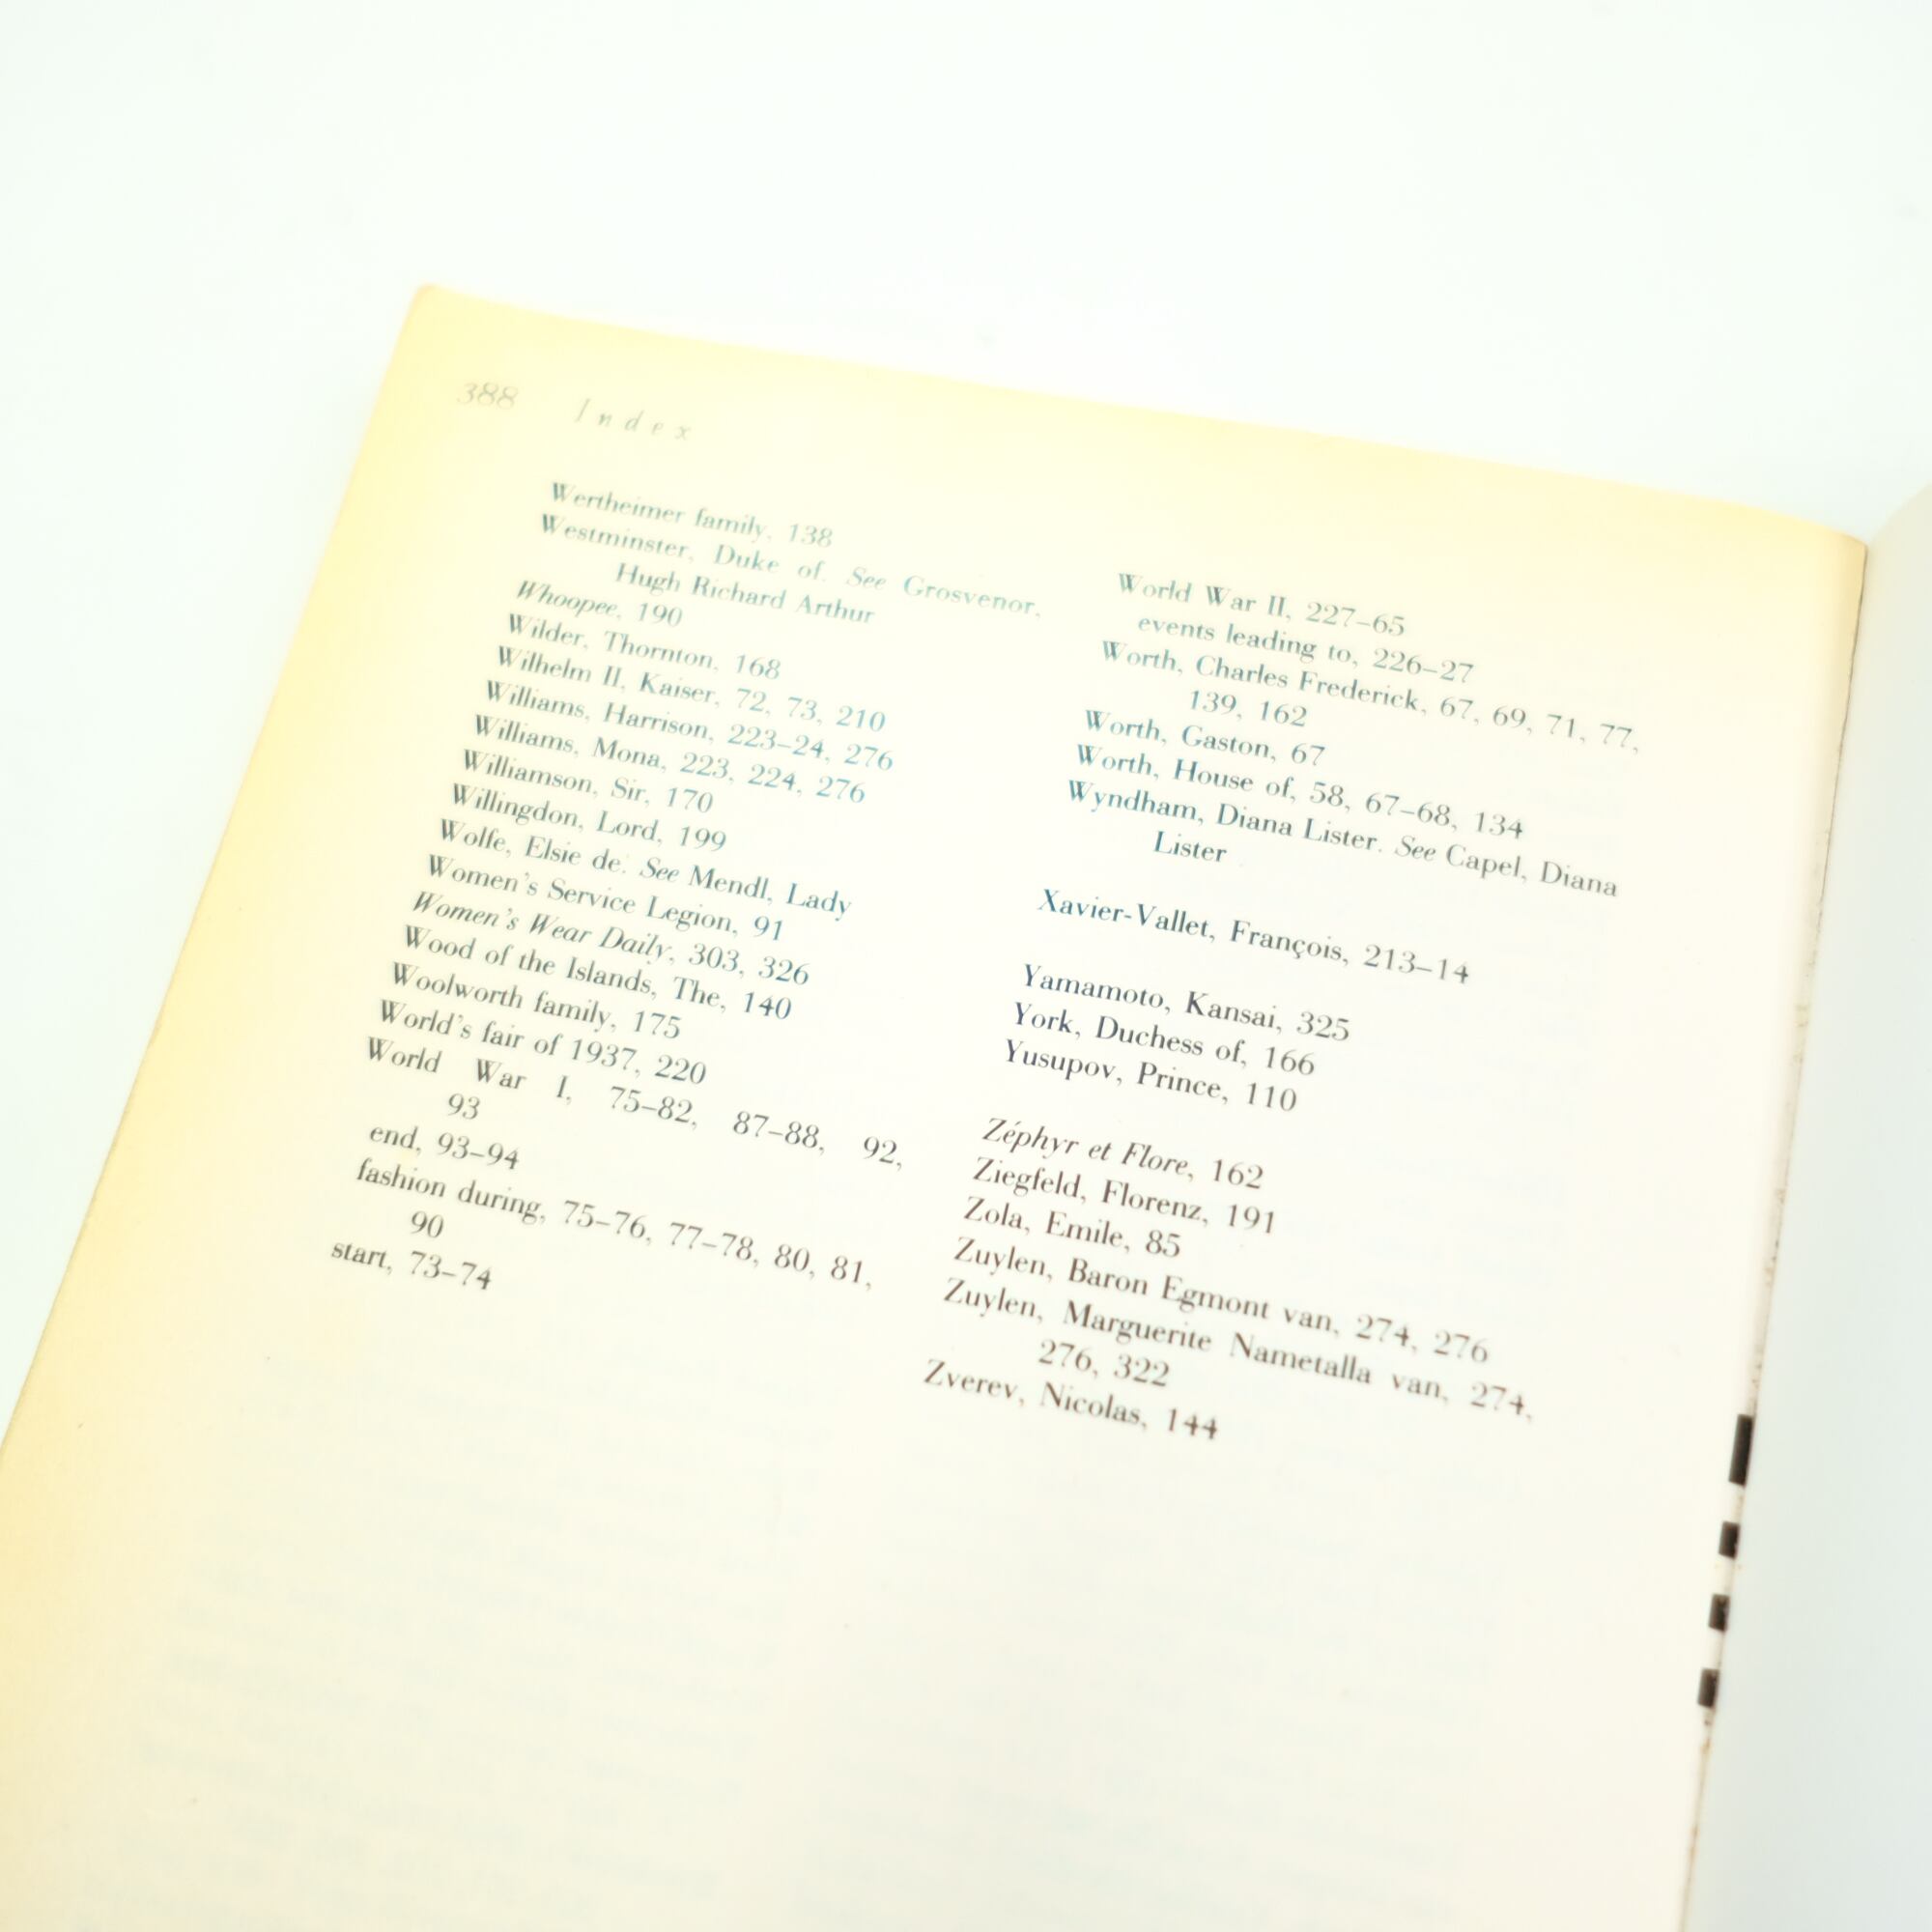 388 Index
Wertheimer family, 138
Westminster, Duke of. See Grosvenor,
Hugh Richard Arthur
Whoopee, 190
Wilder, Thornton, 168
Wilhelm II, Kaiser, 72, 73, 210
Williams, Harrison, 223–24, 276
Williams, Mona, 223, 224, 276
Williamson, Sir, 170
Willingdon, Lord, 199
Wolfe, Elsie de. See Mendl, Lady
Women's Service Legion, 91
Women's Wear Daily, 303, 326
Wood of the Islands, The, 140
Woolworth family, 175
World's fair of 1937, 220
World War I, 75–82, 87–88, 92,
93
end, 93–94
fashion during, 75–76, 77–78, 80, 81,
90
start, 73–74
World War II, 227–65
events leading to, 226–27
Worth, Charles Frederick, 67, 69, 71, 77,
139, 162
Worth, Gaston, 67
Worth, House of, 58, 67–68, 134
Wyndham, Diana Lister. See Capel, Diana
Lister
Xavier-Vallet, François, 213–14
Yamamoto, Kansai, 325
York, Duchess of, 166
Yusupov, Prince, 110
Zéphyr et Flore, 162
Ziegfeld, Florenz, 191
Zola, Emile, 85
Zuylen, Baron Egmont van, 274, 276
Zuylen, Marguerite Nametalla van, 274,
276, 322
Zverev, Nicolas, 144